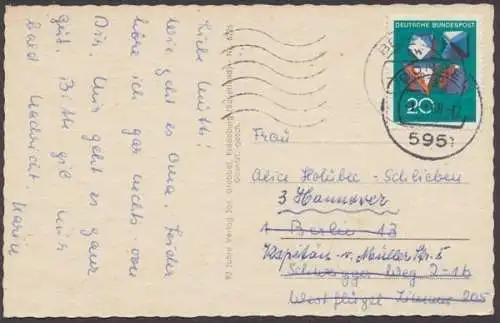 Liebe Mutti!
Wie geht es Oma. Leider
höre ich gar nichts von
Dir. Mir geht es ganz
gut. Bitte gib mir
bald Nachricht. Karin
DEUTSCHE BUNDESPOST
20
595
Frau
Alice Holubec - Schlieben
3 Hannover
1 Berlin 13
Kapitän - v. - Müller Str. 5
Schwegger Weg 2-16
Westflügel Zimmer 205